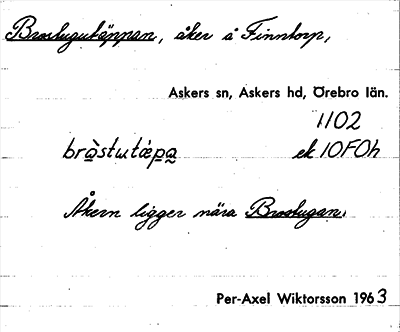 Brostugutäppan, åker å Finntorp,
Askers sn, Askers hd, Örebro län.
1102
bràstutǽpa ek 10F0h
Åkern ligger nära Brostugan.
Per-Axel Wiktorsson 1963